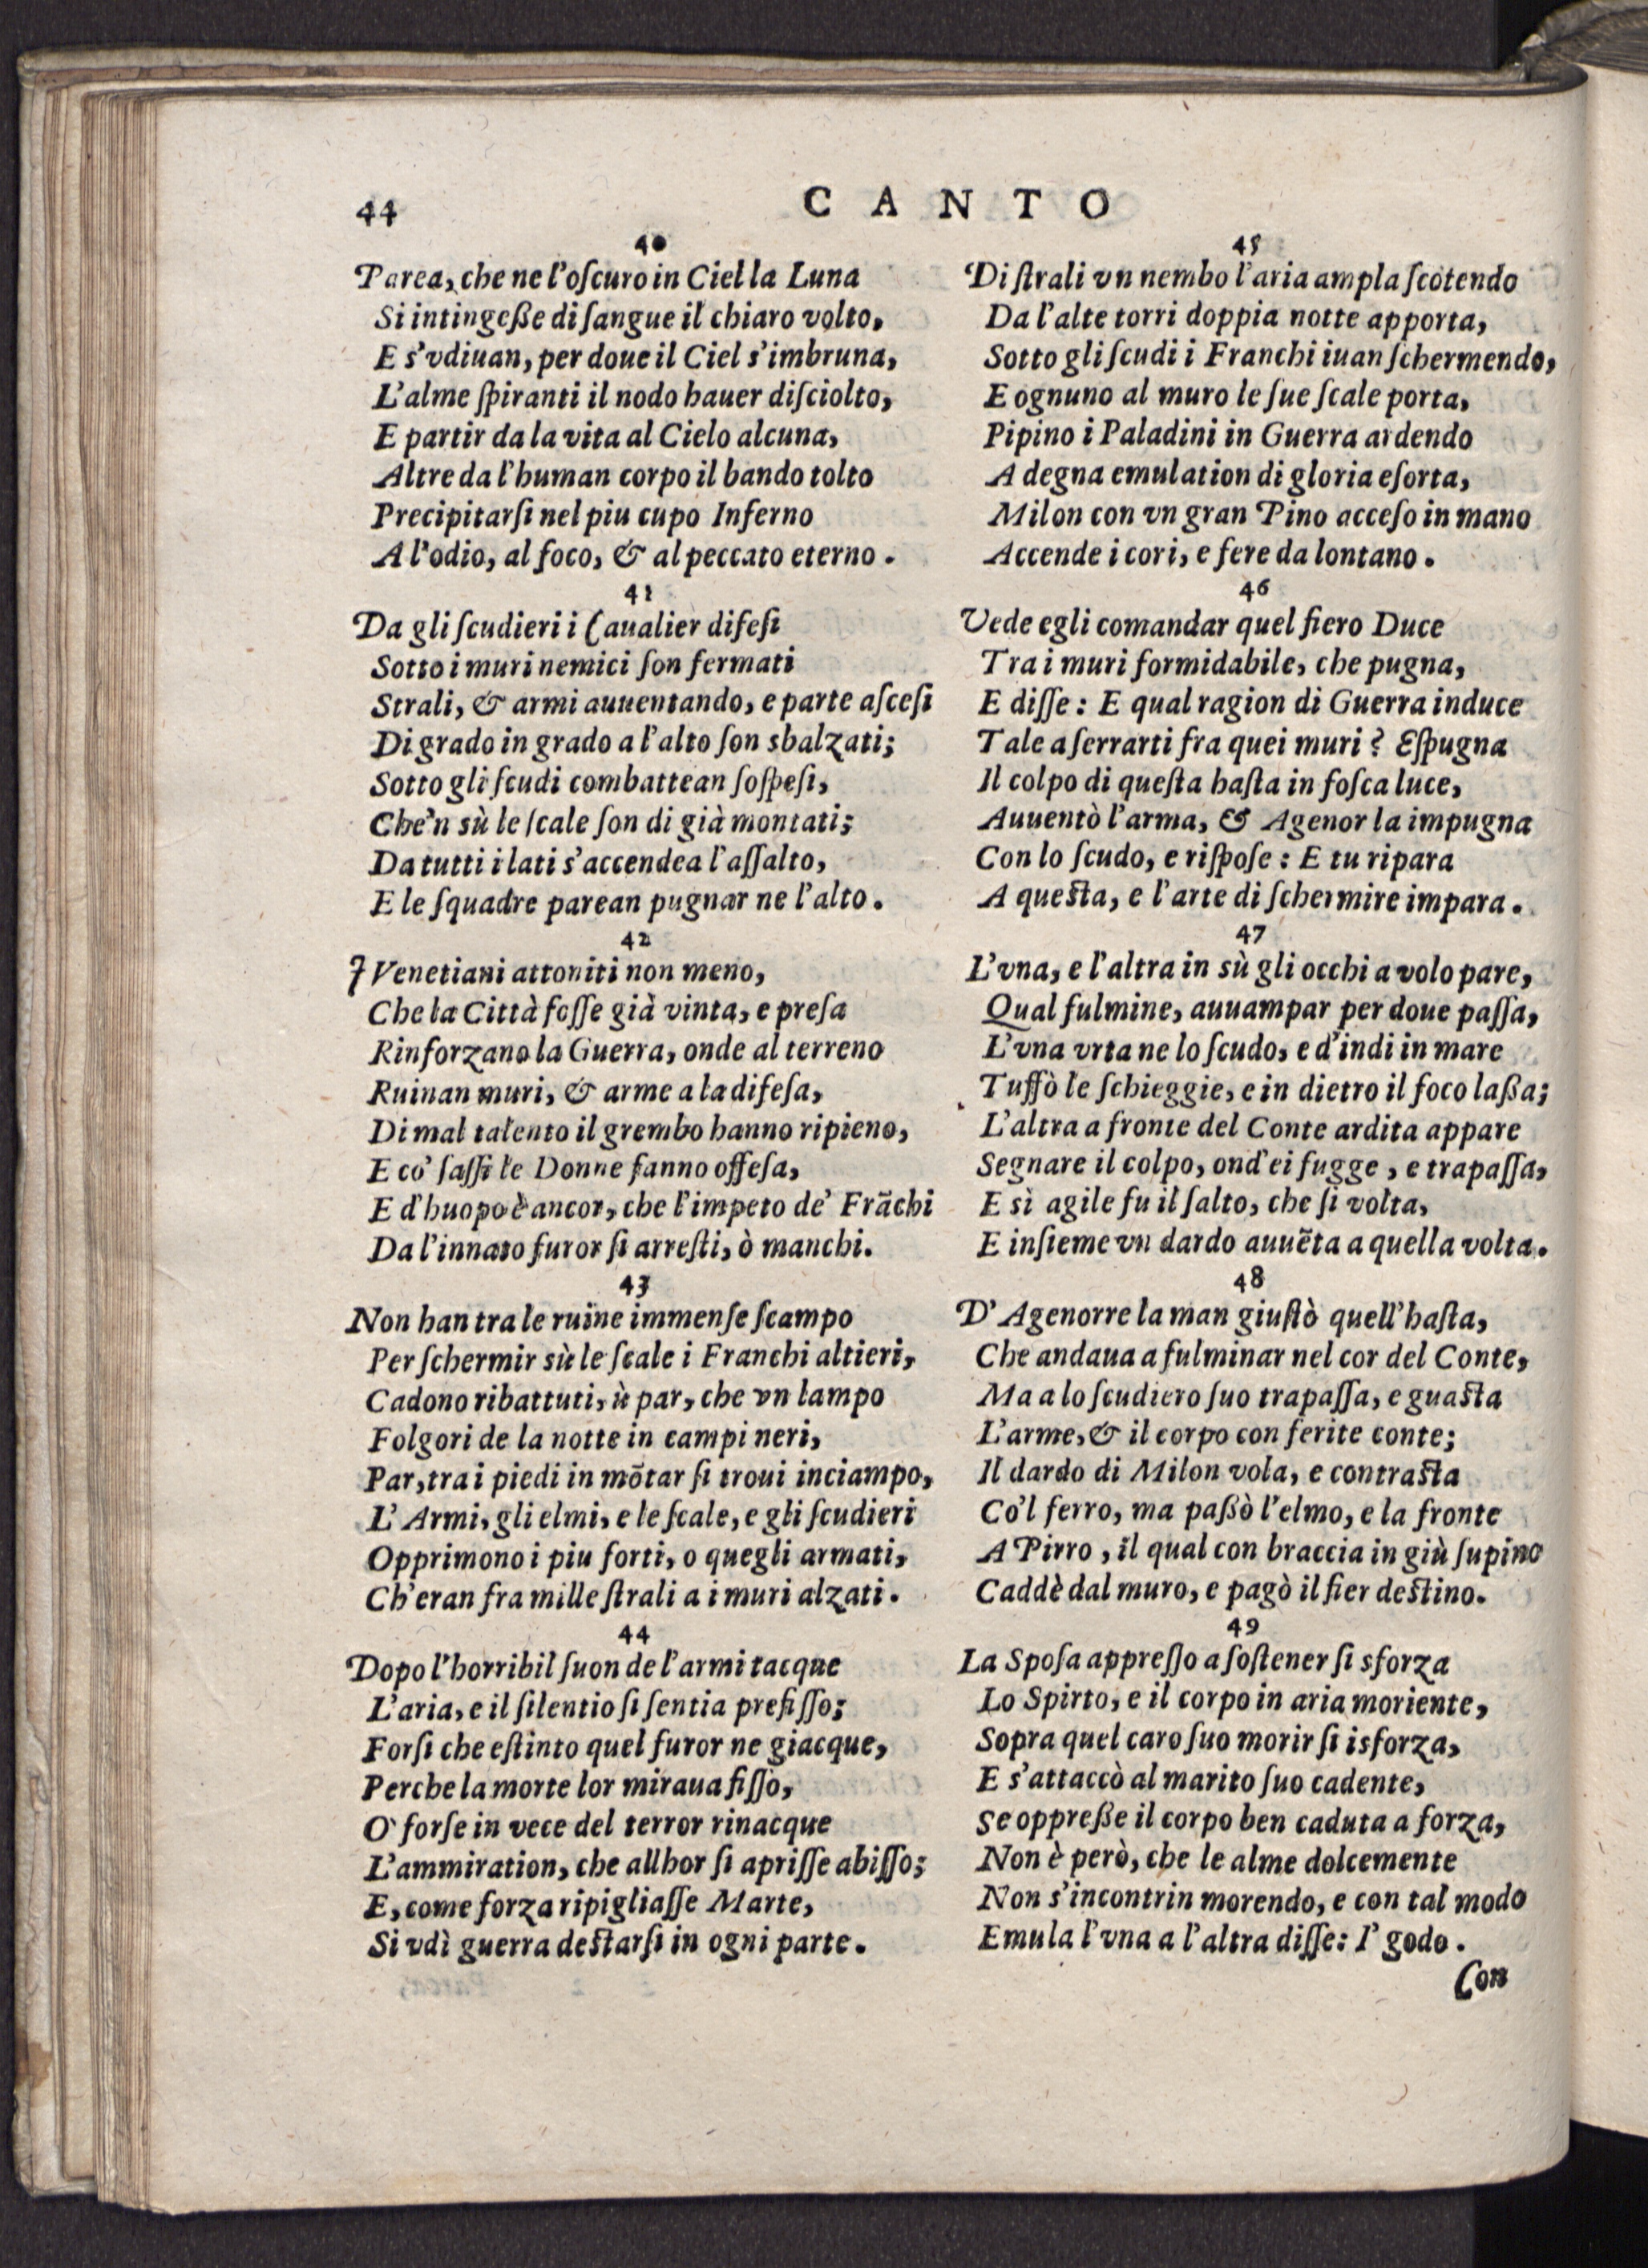 44
CANTO
40
Parea, che ne l'oſcuro in Ciel la Luna
Si intingeße di ſangue il chiaro volto,
E s'vdiuan, per doue il Ciel s'imbruna,
L'alme ſpiranti il nodo hauer diſciolto,
E partir da la vita al Cielo alcuna,
Altre da l'human corpo il bando tolto
Precipitarſi nel piu cupo Inferno
A l'odio, al foco, & al peccato eterno.
41
Da gli ſcudieri i Caualier difeſi
Sotto i muri nemici ſon fermati
Strali, & armi auuentando, e parte aſceſi
Di grado in grado a l'alto ſon sbalzati;
Sotto gli ſcudi combattean ſoſpeſi,
Che'n sù le ſcale ſon di già montati;
Da tutti i lati s'accendea l'aſſalto,
E le ſquadre parean pugnar ne l'alto.
42
I Venetiani attoniti non meno,
Che la Città foſſe già vinta, e preſa
Rinforzano la Guerra, onde al terreno
Ruinan muri, & arme a la difeſa,
Di mal talento il grembo hanno ripieno,
E co' ſaſſi le Donne fanno offeſa,
E d'huopo è ancor, che l'impeto de' Frãchi
Da l'innato furor ſi arreſti, ò manchi.
43
Non han tra le ruine immenſe ſcampo
Per ſchermir sù le ſcale i Franchi altieri,
Cadono ribattuti, ù par, che vn lampo
Folgori de la notte in campi neri,
Par, tra i piedi in mõtar ſi troui inciampo,
L'Armi, gli elmi, e le ſcale, e gli ſcudieri
Opprimono i piu forti, o quegli armati,
Ch'eran fra mille ſtrali a i muri alzati.
44
Dopo l'horribil ſuon de l'armi tacque
L'aria, e il ſilentio ſi ſentia prefiſſo;
Forſi che eſtinto quel furor ne giacque,
Perche la morte lor miraua fiſſo,
O' forſe in vece del terror rinacque
L'ammiration, che allhor ſi apriſſe abiſſo;
E, come forza ripigliaſſe Marte,
Si vdì guerra deſtarſi in ogni parte.
45
Di ſtrali vn nembo l'aria ampla ſcotendo
Da l'alte torri doppia notte apporta,
Sotto gli ſcudi i Franchi iuan ſchermendo,
E ognuno al muro le ſue ſcale porta,
Pipino i Paladini in Guerra ardendo
A degna emulation di gloria eſorta,
Milon con vn gran Pino acceſo in mano
Accende i cori, e fere da lontano.
46
Vede egli comandar quel fiero Duce
Tra i muri formidabile, che pugna,
E diſſe: E qual ragion di Guerra induce
Tale a ſerrarti fra quei muri? Eſpugna
Il colpo di queſta haſta in foſca luce,
Auuentò l'arma, & Agenor la impugna
Con lo ſcudo, e riſpoſe: E tu ripara
A queſta, e l'arte di ſchermire impara.
47
L'vna, e l'altra in sù gli occhi a volo pare,
Qual fulmine, auuampar per doue paſſa,
L'vna vrta ne lo ſcudo, e d'indi in mare
Tuffò le ſchieggie, e in dietro il foco laßa;
L'altra a fronte del Conte ardita appare
Segnare il colpo, ond'ei fugge, e trapaſſa,
E sì agile fu il ſalto, che ſi volta,
E inſieme vn dardo auuẽta a quella volta.
48
D'Agenorre la man giuſtò quell'haſta,
Che andaua a fulminar nel cor del Conte,
Ma a lo ſcudiero ſuo trapaſſa, e guaſta
L'arme, & il corpo con ferite conte;
Il dardo di Milon vola, e contraſta
Co'l ferro, ma paßò l'elmo, e la fronte
A Pirro, il qual con braccia in giù ſupino
Caddè dal muro, e pagò il fier deſtino.
49
La Spoſa appreſſo a ſoſtener ſi sforza
Lo Spirto, e il corpo in aria moriente,
Sopra quel caro ſuo morir ſi isforza,
E s'attaccò al marito ſuo cadente,
Se oppreße il corpo ben caduta a forza,
Non è però, che le alme dolcemente
Non s'incontrin morendo, e con tal modo
Emula l'vna a l'altra diſſe: I' godo.
Con